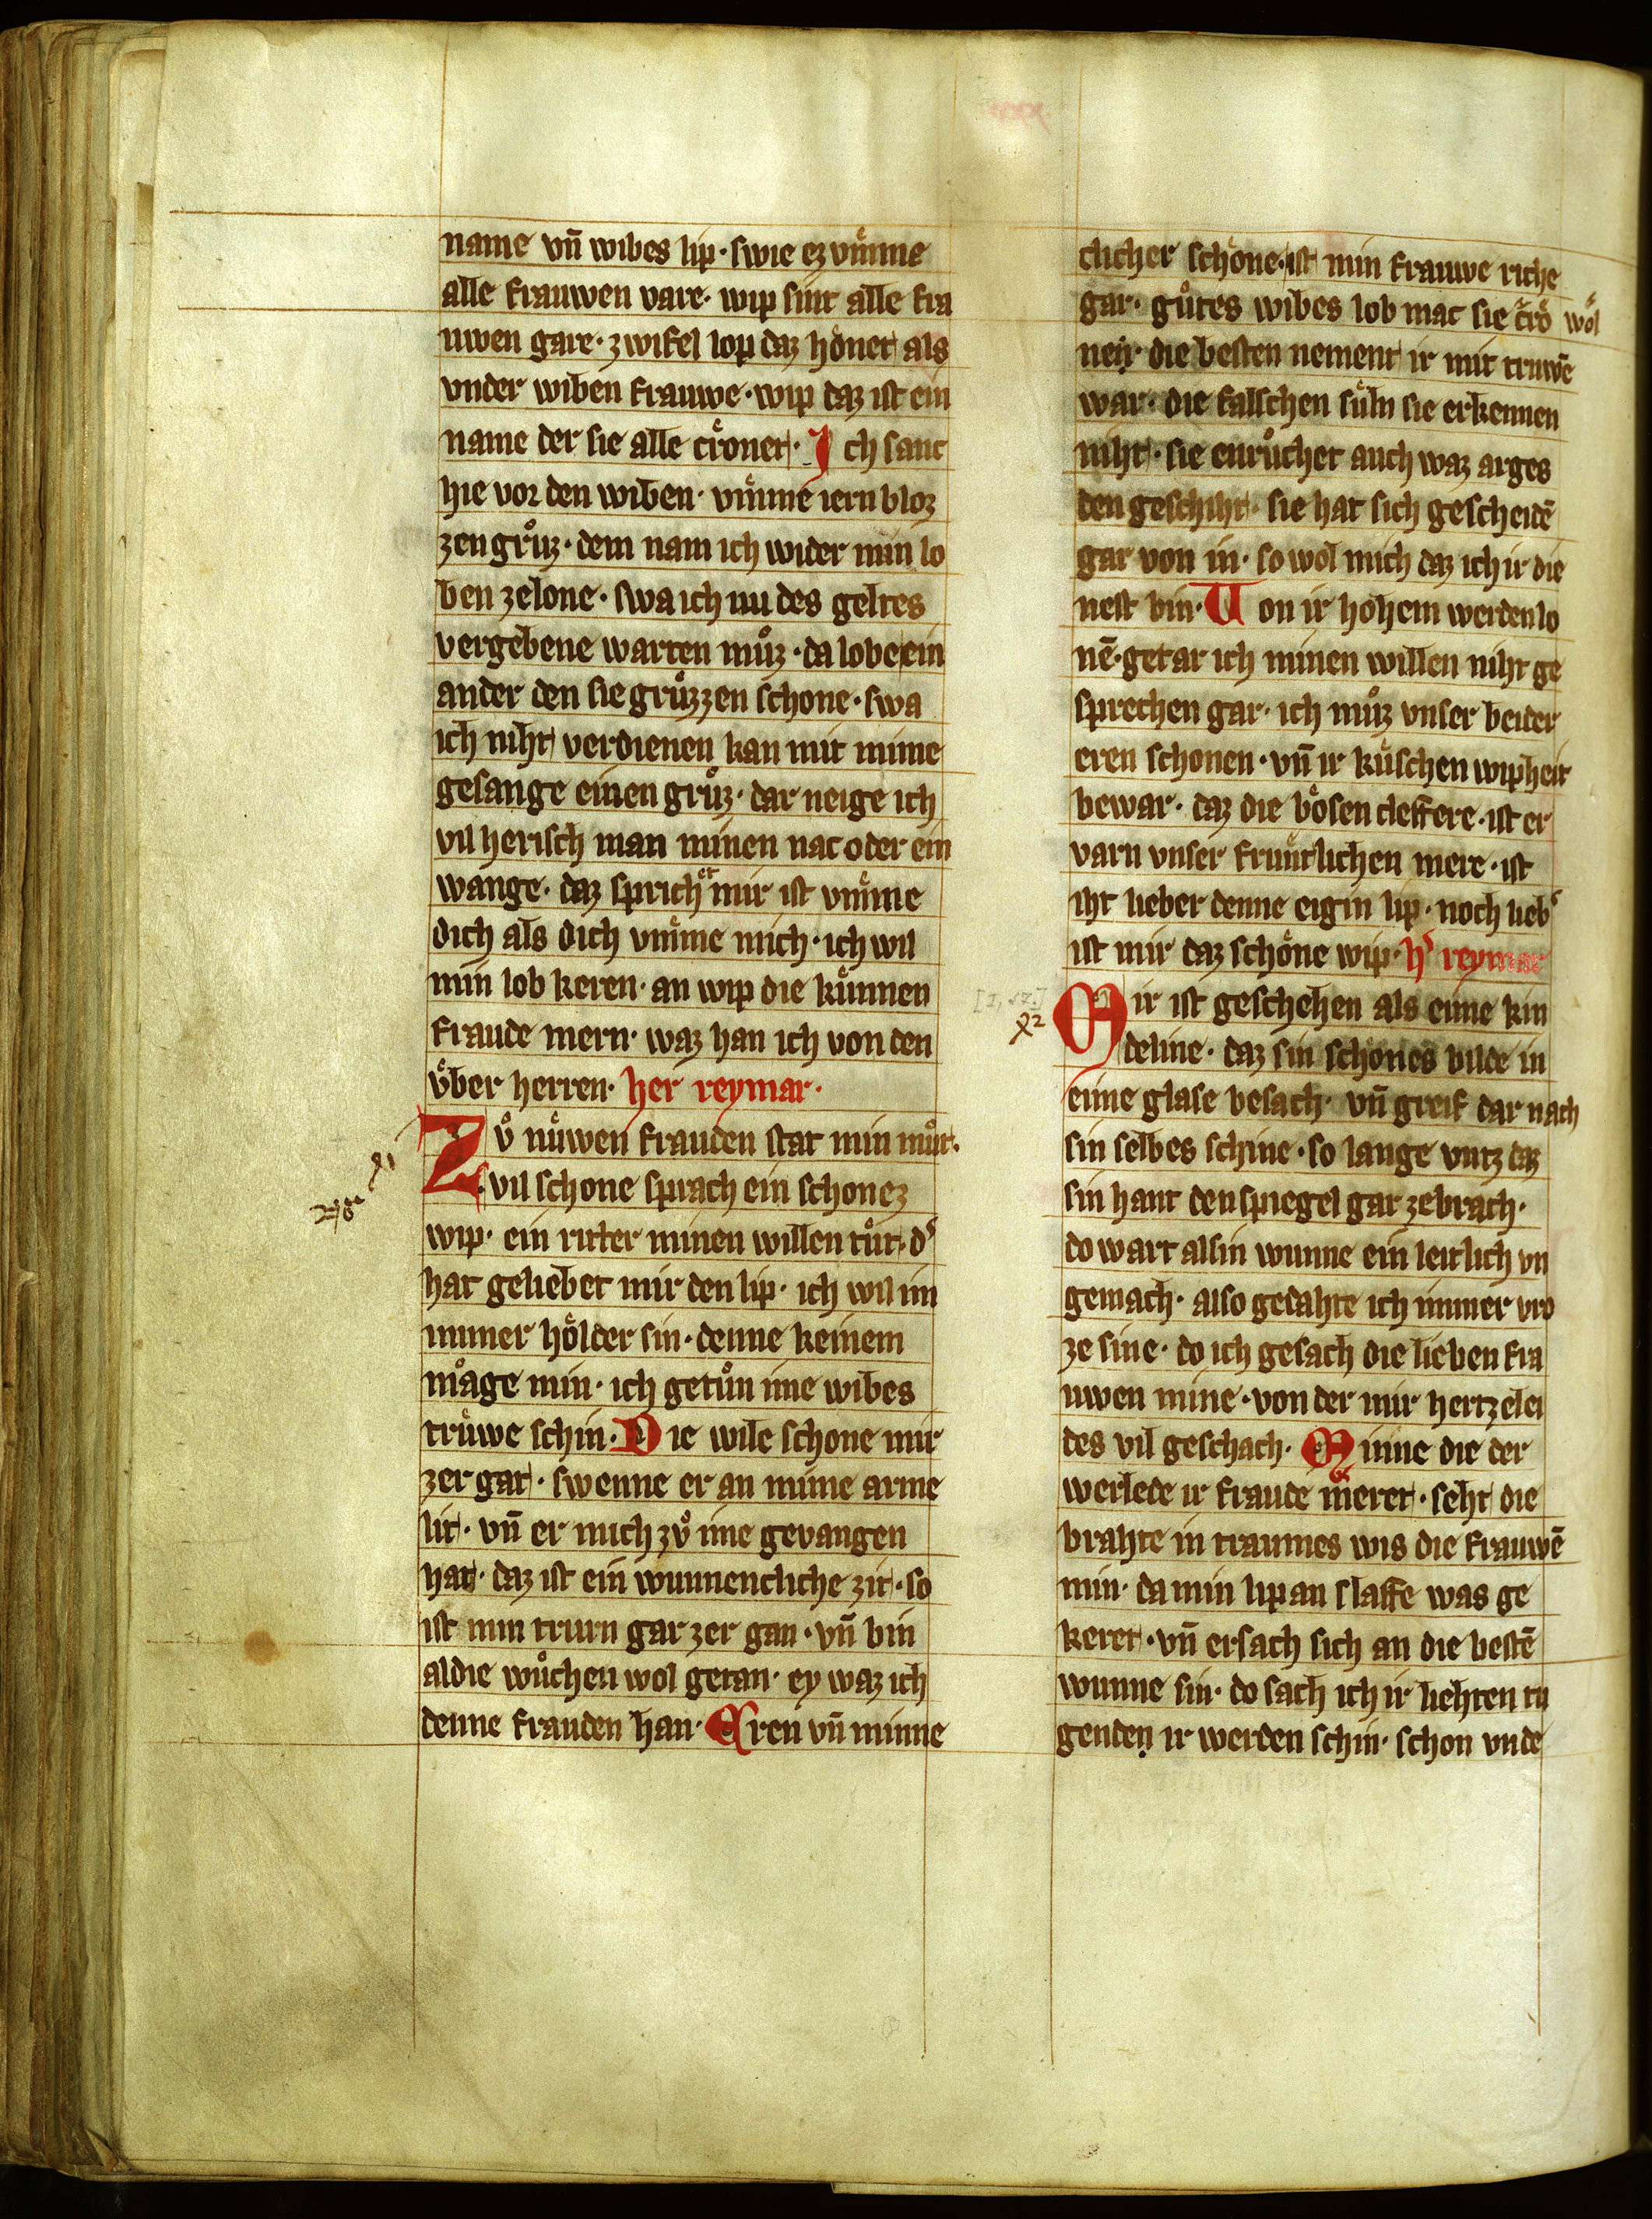 name vn̄ wibes lip · swie ez vmͤme
alle frauwen vare · wip sint alle fra
uwen gare · zwifel lop daz hoͤnet als
vnder wiben frauwe · wip daz ist ein
name der sie alle croͤnet · Ich sanc
hie vor den wiben · vmͤme iern bloz
zen gruͦz · dem nam ich wider min lo
ben zelone · swa ich nu des geltes
vergebene warten muͦz · da lobe ein
ander den sie gruͦzzen schone · swa
ich niht verdienen kan mit mime
gesange einen gruͦz · dar neige ich
vil herisch man minen nac oder ein
wange · daz sprichet mir ist vmͤme
dich als dich vmͤme mich · ich wil
min lob keren · an wip die kuͤnnen
fraude mern · waz han ich von den
vͤber herren · her reymar ·
Zvͦ nuͤwen frauden stat min muͦt ·
vil schone sprach ein schonez
wip · ein ritter minen willen tuͦt · dˢ
hat geliebet mir den lip · ich wil im
immer hoͤlder sin · denne keinem
maͦge min · ich getuͦn ime wibes
truͤwe schin · Die wile schone mir
zer gat · swenne er an mime arme
lit · vn̄ er mich zvͦ ime gevangen
hat · daz ist ein wunnencliche zit · so
ist min trurn gar zer gan · vn̄ bin
aldie wuͦchen wol getan · ey waz ich
denne frauden han · Eren vn̄ minne
clicher schoͤne · ist min frauwe riche
gar · guͦtes wibes lob mac sie croͤ woͤl
nen · die besten nement ir mit truwē
war · die falschen suͤln sie erkennen
niht · sie enruͦchet auch waz arges
den geschiht · sie hat sich gescheidē
gar von in · so wol mich daz ich ir die
nest bin · Von ir hohem werden lo
nē · getar ich minen willen niht ge
sprechen gar · ich muͦz vnser beider
eren schonen · vn̄ ir kuͤschen wipheit
bewar · daz die boͤsen cleffere · ist er
varn vnser fruntlichen mere · ist
iht lieber denne eigin lip · noch liebˢ
ist mir daz schoͤne wip · hˢ reymar
Mir ist geschehen als eime kin
deline · daz sin schones bilde in
eime glase besach · vn̄ greif dar nach
sin selbes schine · so lange vntz daz
sin hant den spiegel gar zebrach ·
do wart alsin wunne ein leitlich vn
gemach · also gedahte ich immer vro
ze sine · do ich gesach die lieben fra
uwen mine · von der mir hertzelei
des vil geschach · Minne die der
werlede ir fraude meret · seht die
brahte in traumes wis die frauwē
min · da min lip an slaffe was ge
keret · vn̄ ersach sich an die bestē
wunne sin · do sach ich ir liehten tu
genden ir werden schin · schon vnde